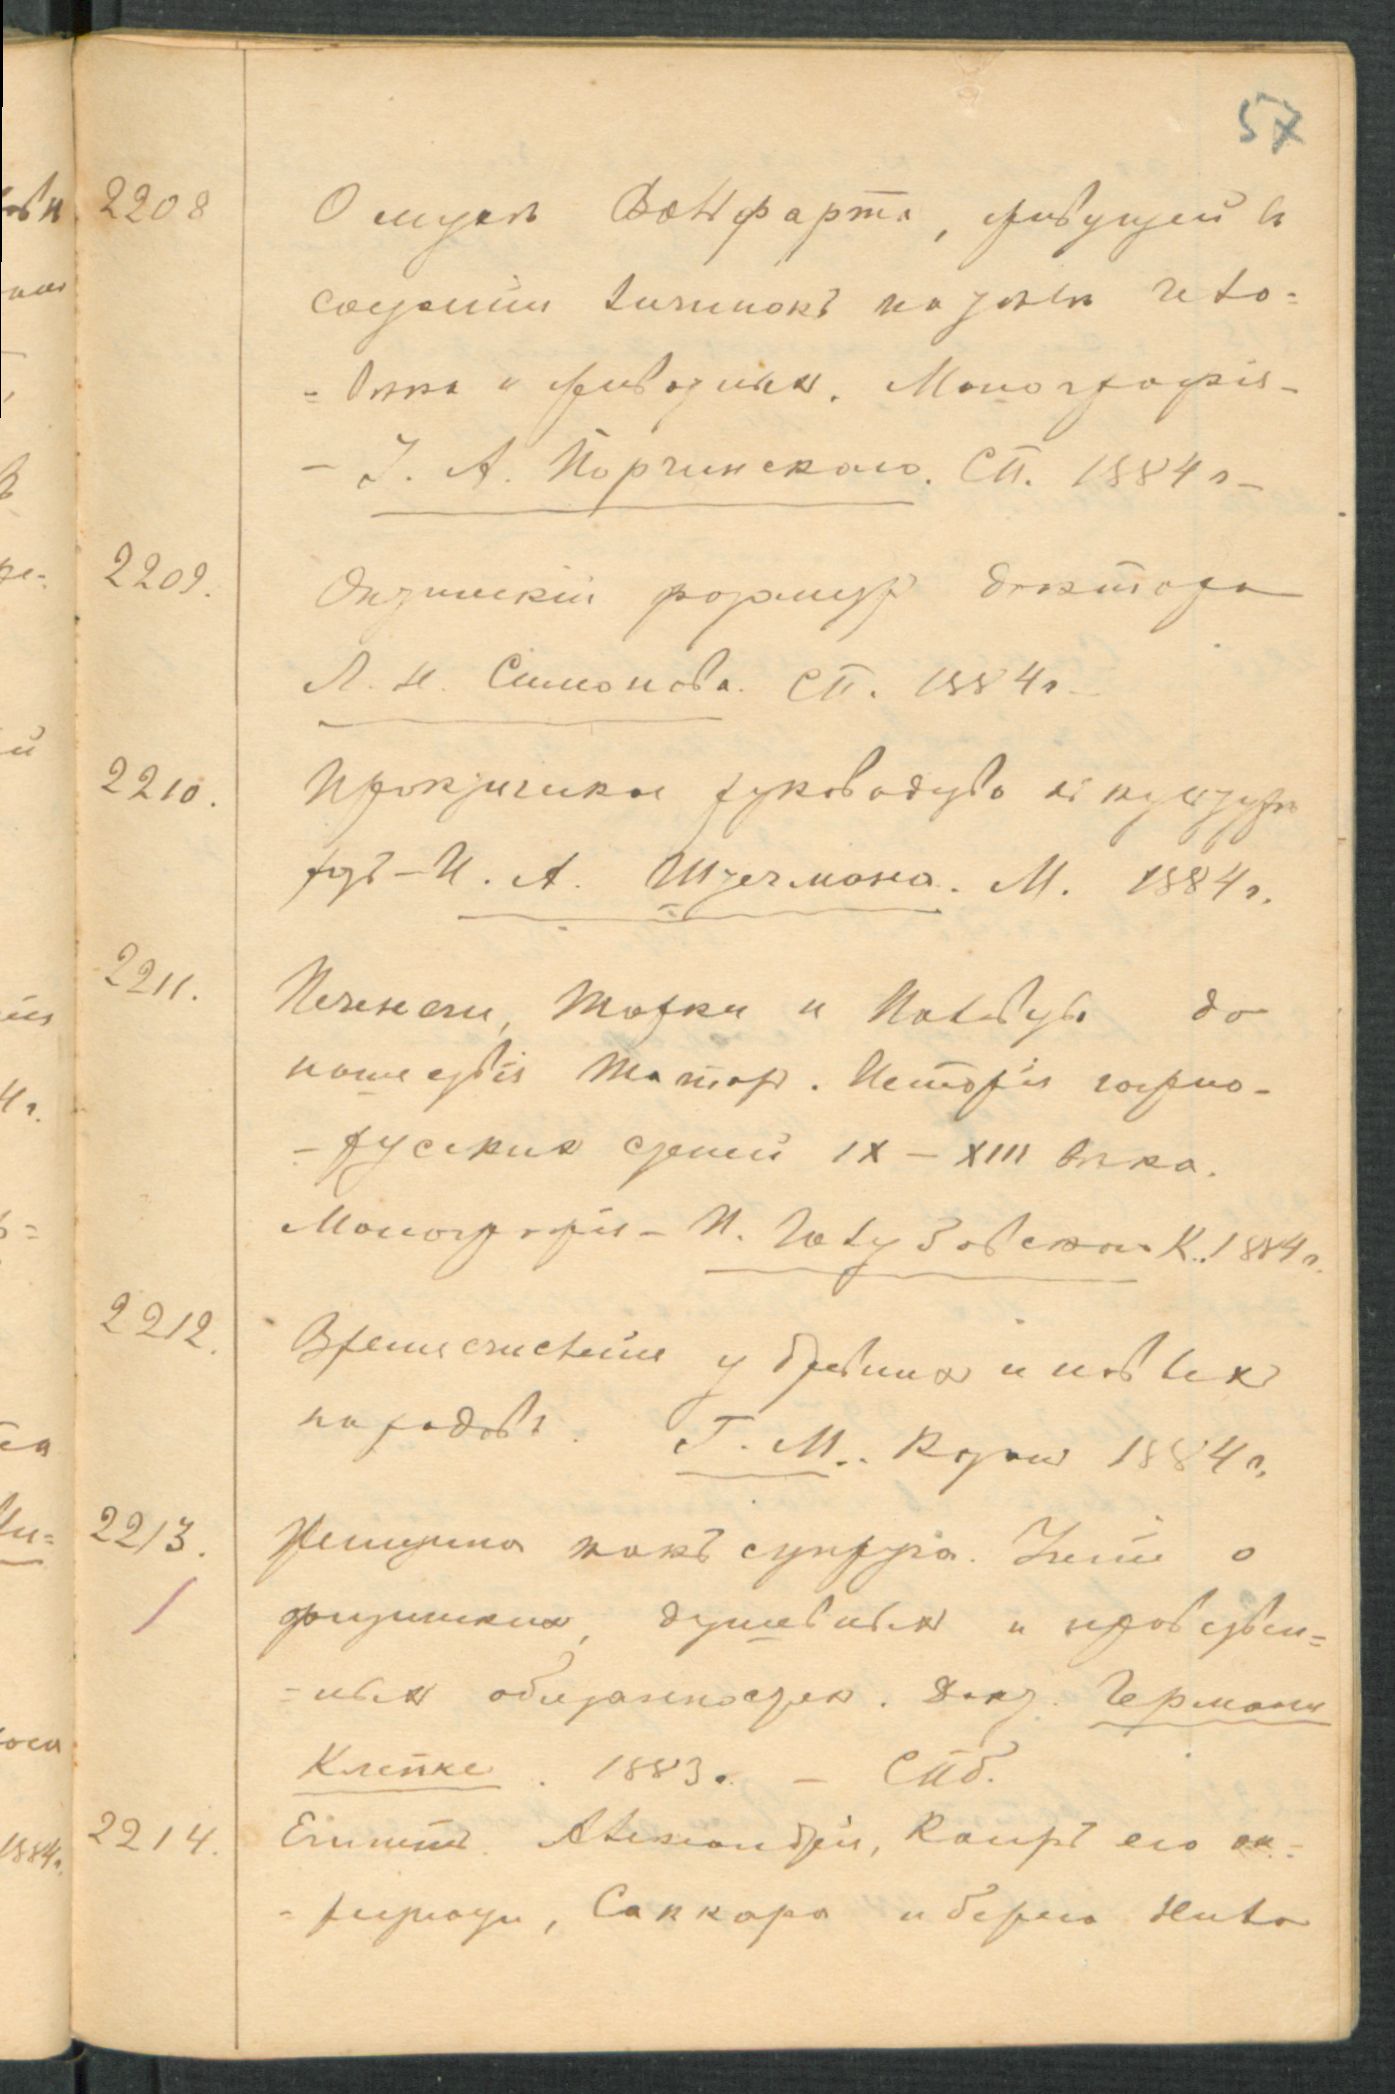 57
2208 О мухѣ Вольфарта, живущей въ
состояніи личинокъ на тѣлѣ чело-
-вѣка и животныхъ. Монографія-
- І. А. Порчинскаго. СП. 1884 г-
2209. формуляръ доктора
Л. Н. Симонова. СП. 1884 г.-
2210. Практическое руководство къ культурѣ
розъ - И. А. Штегмана. М. 1884 г.
2211. Печенеги, Торки и Половцы до
нашествія Татаръ. Исторія южно-
-русскихъ степей IX - XIII вѣка.
Монографія - П. Голубовскаго К. 1884 г.
2212. Времясчисленіе у древнихъ и новыхъ
народовъ. Г. М.. Казань 1884 г.
2213. Женщина какъ супруга. Чтеніе о
физическихъ, душевныхъ и нравствен-
-ныхъ обязанностяхъ. Докт. Германа
Кленке. 1883. - СПб.
2214. Египетъ. Александрія, Каиръ его ок-
-рестности, Саккара и берега Нила